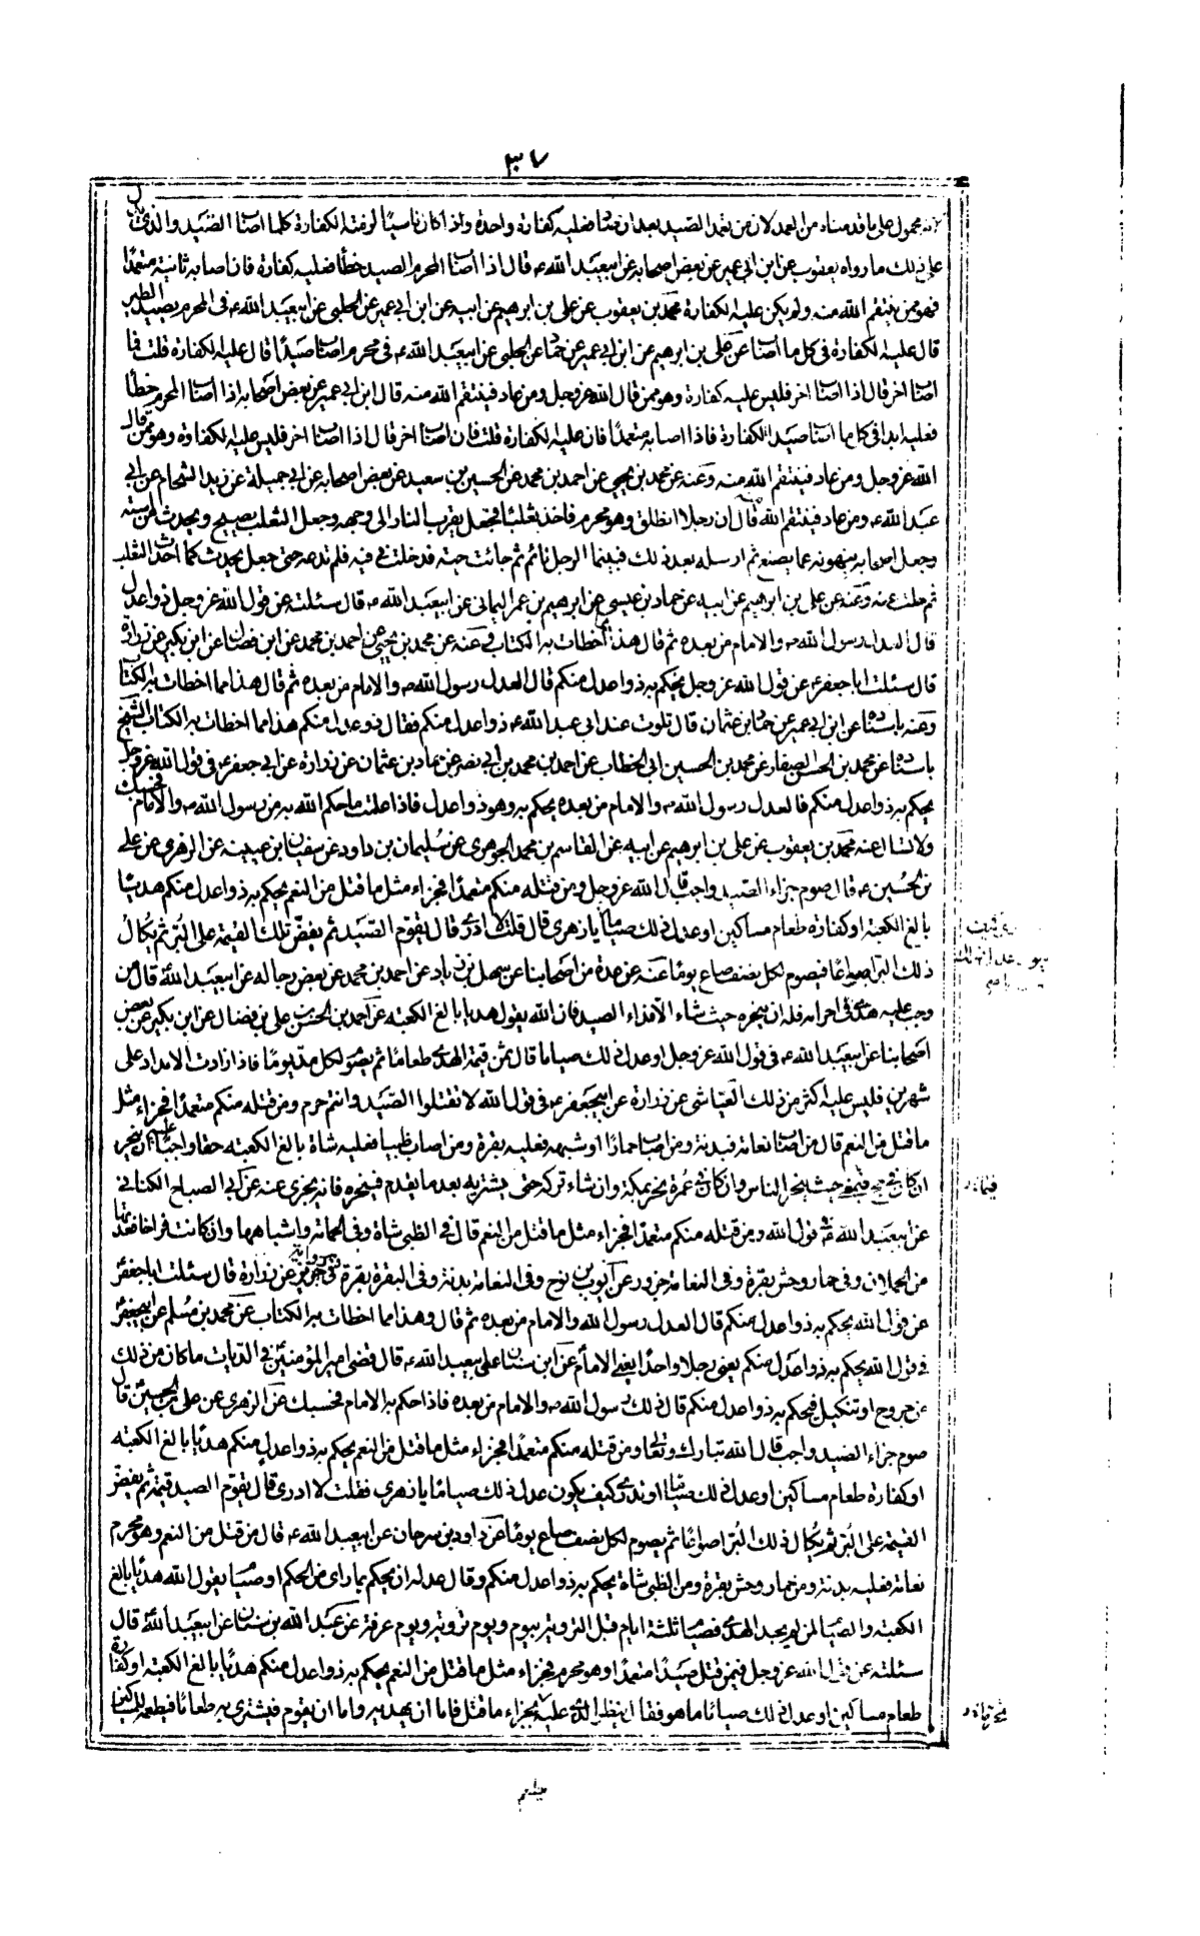 ٣٠٧
محمول على ما قدمناه من العمد لان من تعمد الصيد بعد ان صاد فعليه كفارة واحدة واذا كان ناسيا لزمته الكفارة كلما اصاب الصيد والذى يدل
على ذلك ما رواه يعقوب عن ابن ابى عمير عن بعض اصحابه عن ابيعبد الله ع قال اذا اصاب المحرم الصيد خطأ فعليه كفارة فان اصابه ثانية متعمدا
فهو ممن ينتقم الله منه ولم يكن عليه الكفارة محمد بن يعقوب عن على بن ابرهيم عن ابيه عن ابن ابى عمير عن الحلبى عن ابيعبد الله ع فى المحرم يصيد الطير
قال عليه الكفارة فى كل ما اصاب عن على بن ابرهيم عن ابن ابى عمير عن حماد عن الحلبى عن ابيعبد الله ع فى محرم اصاب صيدا قال عليه الكفارة قلت فما
اصاب اخر قال اذا اصاب اخر فليس عليه كفارة وهو ممن قال الله عز وجل ومن عاد فينتقم الله منه قال ابن ابى عمير عن بعض اصحابه اذا اصاب المحرم خطأ
فعليه ابدا فى كل ما اصاب صيد الكفارة فاذا اصابه متعمدا فان عليه الكفارة قلت فان اصاب اخر قال اذا اصاب اخر فليس عليه الكفارة وهو ممن قال
الله عز وجل ومن عاد فينتقم الله منه وعنه عن محمد بن يحيى عن احمد بن محمد عن الحسين بن سعيد عن بعض اصحابه عن ابى جميلة عن زيد الشحام عن ابى
عبد الله ع ومن عاد فينتقم الله قال ان رجلا انطلق وهو محرم فاخذ ثعلبا فجعل يقرب النار الى وجهه وجعل الثعلب يصيح ويحدث من استه
وجعل اصحابه ينهونه عما يصنع ثم ارسله بعد ذلك فبينما الرجل نائم ثم جائت حية فدخلت فى فيه فلم تدعه حتى جعل يحدث كما احدث الثعلب
ثم خلت عنه وعنه عن على بن ابرهيم عن ابيه عن حماد بن عيسى عن ابرهيم بن عمر اليمانى عن ابيعبد الله ع قال سئلته عن قول الله عز وجل ذوا عدل
قال العدل رسول الله ص والامام من بعده ثم قال هذا اخطات به الكتاب وعنه عن محمد بن يحيى عن احمد بن محمد عن ابن فضال عن ابن بكير عن زرارة
قال سئلت اباجعفر ع عن قول الله عز وجل يحكم به ذوا عدل منكم قال العدل رسول الله ص والامام من بعده ثم قال هذا مما اخطات به الكتاب
وعنه باسناده عن ابن ابى عمير عن حماد بن عثمان قال تلوت عند ابى عبد الله ع ذوا عدل منكم فقال ذو عدل منكم هذا مما اخطات به الكتاب الشيخ
باسناده عن محمد بن الحسن الصفار عن محمد بن الحسين ابى الخطاب عن احمد بن محمد بن ابى نصر عن حماد بن عثمان عن زرارة عن ابى جعفر ع فى قول الله عز وجل
يحكم به ذوا عدل منكم فالعدل رسول الله ص والامام من بعده يحكم به وهو ذو عدل فاذا علمت ما حكم الله به من رسول الله ص والامام فحسبك
ولا تسال عنه محمد بن يعقوب عن على بن ابرهيم عن ابيه عن القاسم بن محمد الجوهرى عن سليمان بن داود عن سفيان بن عيينة عن الزهرى عن على
بن الحسين ع قال صوم جزاء الصيد واجب قال الله عز وجل ومن قتله منكم متعمدا فجزاء مثل ما قتل من النعم يحكم به ذوا عدل منكم هديا
بالغ الكعبة او كفارة طعام مساكين او عدل ذلك صياما يا زهرى قال قلت لا ادرى قال يقوم الصيد ثم يفض تلك القيمة على البر ثم يكال
ذلك البر اصواعا فيصوم لكل نصف صاع يوما عنه عن عدة من اصحابنا عن سهل بن زياد عن احمد بن محمد عن بعض رجاله عن ابيعبد الله ع قال من
وجب عليه هدى فى احرامه فله ان ينحره حيث شاء الا فداء الصيد فان الله يقول هديا بالغ الكعبة عن احمد بن الحسن بن على بن فضال عن ابن بكير عن بعض
اصحابنا عن ابيعبد الله ع فى قول الله عز وجل او عدل ذلك صياما قال ثمن قيمة الهدى طعاما ثم يصوم لكل مد يوما فاذا زادت الامداد على
شهرين فليس عليه اكثر من ذلك العياشى عن زرارة عن ابيجعفر ع فى قول الله لا تقتلوا الصيد وانتم حرم ومن قتله منكم متعمدا فجزاء مثل
ما قتل من النعم قال من اصاب نعامة فبدنة ومن اصاب حمارا او شبهه فعليه بقرة ومن اصاب ظبيا فعليه شاة بالغ الكعبة حقا واجبا عليه ان ينحر
ان كان فى حج فبمنى حيث ينحر الناس وان كان فى عمرة نحر بمكة وان شاء تركه حتى يشتريه بعد ما يقدم فينحره فانه يجزى عنه عن ابى الصباح الكنانى
عن ابيعبد الله ع فى قول الله ومن قتله منكم متعمدا فجزاء مثل ما قتل من النعم قال فى الظبى شاة وفى الحمامة واشباهها وان كانت فراخا فعدتها
من الحملان وفى حمار وحش بقرة وفى النعامة جزور عن ايوب بن نوح وفى النعامة بدنة وفى البقرة بقرة وفى رواية حريز عن زرارة قال سئلت اباجعفر ع
عن قول الله يحكم به ذوا عدل منكم قال العدل رسول الله والامام من بعده ثم قال وهذا مما اخطات به الكتاب عن محمد بن مسلم عن ابيجعفر ع
فى قول الله يحكم به ذوا عدل منكم يعنى رجلا واحدا يعنى الامام عن ابن سنان عن ابيعبد الله ع قال قضى امير المؤمنين فى الديات ما كان من ذلك
من جروح او تنكيل فيحكم به ذوا عدل منكم قال ذلك رسول الله ص والامام من بعده فاذا حكم به الامام فحسبك عن الزهرى عن على بن الحسين ع قال
صوم جزاء الصيد واجب قال الله تبارك وتعالى ومن قتله منكم متعمدا فجزاء مثل ما قتل من النعم يحكم به ذوا عدل منكم هديا بالغ الكعبة
او كفارة طعام مساكين او عدل ذلك صياما او تدرى كيف يكون عدل ذلك صياما يا زهرى فقلت لا ادرى قال يقوم الصيد قيمة ثم يفض
القيمة على البر ثم يكال ذلك البر اصواعا ثم يصوم لكل نصف صاع يوما عن داود بن سرحان عن ابيعبد الله ع قال من قتل من النعم وهو محرم
نعامة فعليه بدنة ومن حمار وحش بقرة ومن الظبى شاة يحكم به ذوا عدل منكم وقال عدله ان يحكم بما راى من الحكم او صيام يقول الله هديا بالغ
الكعبة والصيام لمن لم يجد الهدى فصيام ثلثة ايام قبل التروية بيوم ويوم تروية ويوم عرفة عن عبد الله بن سنان عن ابيعبد الله ع قال
سئلته عن قول الله عز وجل فيمن قتل صيدا متعمدا وهو محرم فجزاء مثل ما قتل من النعم يحكم به ذوا عدل منكم هديا بالغ الكعبة او كفارة
طعام مساكين او عدل ذلك صياما ما هو فقال ينظر الذى عليه بجزاء ما قتل فاما ان يهديه واما ان يقوم فيشترى به طعاما فيطعمه المساكين